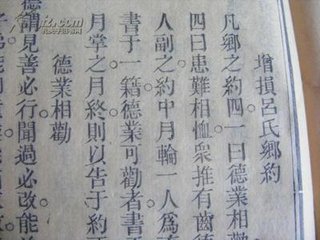 增損呂氏鄉約
凡鄉之約四一曰德業相
四曰患難相恤衆推有齒德
人副之約中月輪一人爲
書于一籍德業可勸者書
月掌之月終則以告于約
德業相勸
德謂見善必行聞過必改能